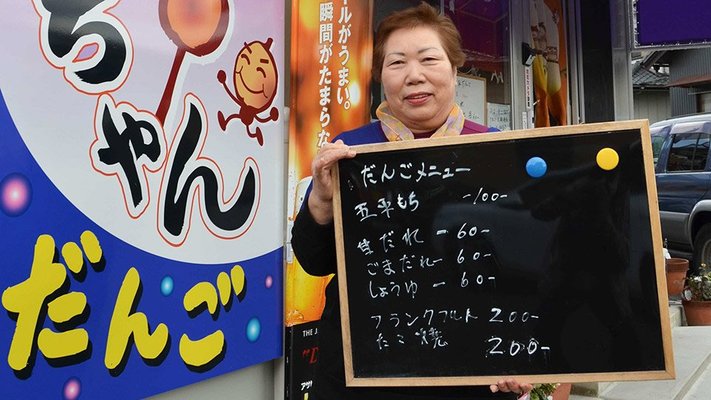 ちゃん
だんご
ルがうまい。
瞬間がたまらな
だんごメニュー
五平もち -100-
甘だれ -60-
ごまだれ- 60-
しょうゆ -60-
フランクフルト 200-
たこ焼 200-